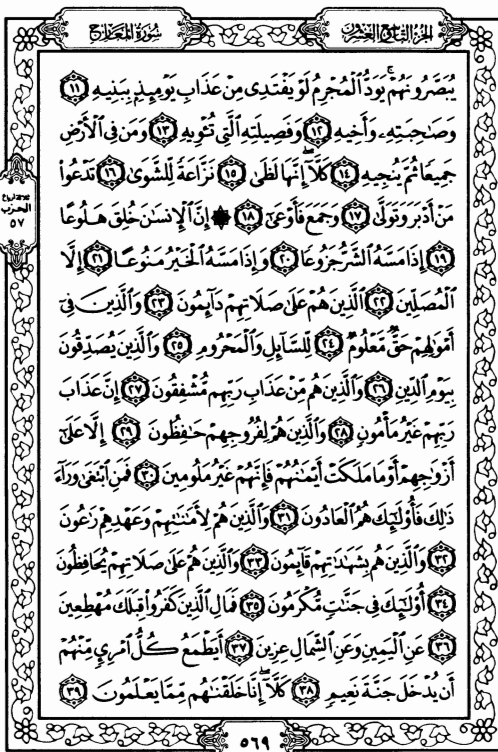 الجزء التاسع والعشرون
سورة المعارج
يُبَصَّرُونَهُمْ ۚ يَوَدُّ ٱلْمُجْرِمُ لَوْ يَفْتَدِى مِنْ عَذَابِ يَوْمِئِذٍۭ بِبَنِيهِ ١١
وَصَـٰحِبَتِهِۦ وَأَخِيهِ ١٢ وَفَصِيلَتِهِ ٱلَّتِى تُـْٔوِيهِ ١٣ وَمَن فِى ٱلْأَرْضِ
جَمِيعًا ثُمَّ يُنجِيهِ ١٤ كَلَّآ ۖ إِنَّهَا لَظَىٰ ١٥ نَزَّاعَةً لِّلشَّوَىٰ ١٦ تَدْعُوا۟
مَنْ أَدْبَرَ وَتَوَلَّىٰ ١٧ وَجَمَعَ فَأَوْعَىٰٓ ١٨ ۞ إِنَّ ٱلْإِنسَـٰنَ خُلِقَ هَلُوعًا
١٩ إِذَا مَسَّهُ ٱلشَّرُّ جَزُوعًا ٢٠ وَإِذَا مَسَّهُ ٱلْخَيْرُ مَنُوعًا ٢١ إِلَّا
ٱلْمُصَلِّينَ ٢٢ ٱلَّذِينَ هُمْ عَلَىٰ صَلَاتِهِمْ دَآئِمُونَ ٢٣ وَٱلَّذِينَ فِىٓ
أَمْوَٰلِهِمْ حَقٌّ مَّعْلُومٌ ٢٤ لِّلسَّآئِلِ وَٱلْمَحْرُومِ ٢٥ وَٱلَّذِينَ يُصَدِّقُونَ
بِيَوْمِ ٱلدِّينِ ٢٦ وَٱلَّذِينَ هُم مِّنْ عَذَابِ رَبِّهِم مُّشْفِقُونَ ٢٧ إِنَّ عَذَابَ
رَبِّهِمْ غَيْرُ مَأْمُونٍ ٢٨ وَٱلَّذِينَ هُمْ لِفُرُوجِهِمْ حَـٰفِظُونَ ٢٩ إِلَّا عَلَىٰٓ
أَزْوَٰجِهِمْ أَوْ مَا مَلَكَتْ أَيْمَـٰنُهُمْ فَإِنَّهُمْ غَيْرُ مَلُومِينَ ٣٠ فَمَنِ ٱبْتَغَىٰ وَرَآءَ
ذَٰلِكَ فَأُو۟لَـٰٓئِكَ هُمُ ٱلْعَادُونَ ٣١ وَٱلَّذِينَ هُمْ لِأَمَـٰنَـٰتِهِمْ وَعَهْدِهِمْ رَٰعُونَ
٣٢ وَٱلَّذِينَ هُم بِشَهَـٰدَٰتِهِمْ قَآئِمُونَ ٣٣ وَٱلَّذِينَ هُمْ عَلَىٰ صَلَاتِهِمْ يُحَافِظُونَ
٣٤ أُو۟لَـٰٓئِكَ فِى جَنَّـٰتٍ مُّكْرَمُونَ ٣٥ فَمَالِ ٱلَّذِينَ كَفَرُوا۟ قِبَلَكَ مُهْطِعِينَ
٣٦ عَنِ ٱلْيَمِينِ وَعَنِ ٱلشِّمَالِ عِزِينَ ٣٧ أَيَطْمَعُ كُلُّ ٱمْرِئٍ مِّنْهُمْ
أَن يُدْخَلَ جَنَّةَ نَعِيمٍ ٣٨ كَلَّآ ۖ إِنَّا خَلَقْنَـٰهُم مِّمَّا يَعْلَمُونَ ٣٩
الحزب
٥٧
٥٦٩